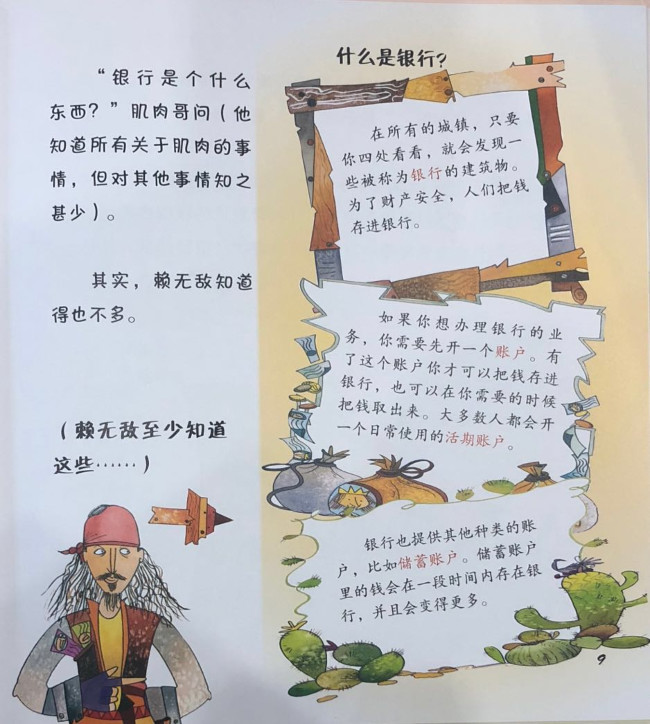 “银行是个什么
东西？”肌肉哥问（他
知道所有关于肌肉的事
情，但对其他事情知之
甚少）。
其实，赖无敌知道
得也不多。
（赖无敌至少知道
这些……）
什么是银行？
在所有的城镇，只要
你四处看看，就会发现一
些被称为银行的建筑物。
为了财产安全，人们把钱
存进银行。
如果你想办理银行的业
务，你需要先开一个账户。有
了这个账户你才可以把钱存进
银行，也可以在你需要的时候
把钱取出来。大多数人都会开
一个日常使用的活期账户。
银行也提供其他种类的账
户，比如储蓄账户。储蓄账户
里的钱会在一段时间内存在银
行，并且会变得更多。
9